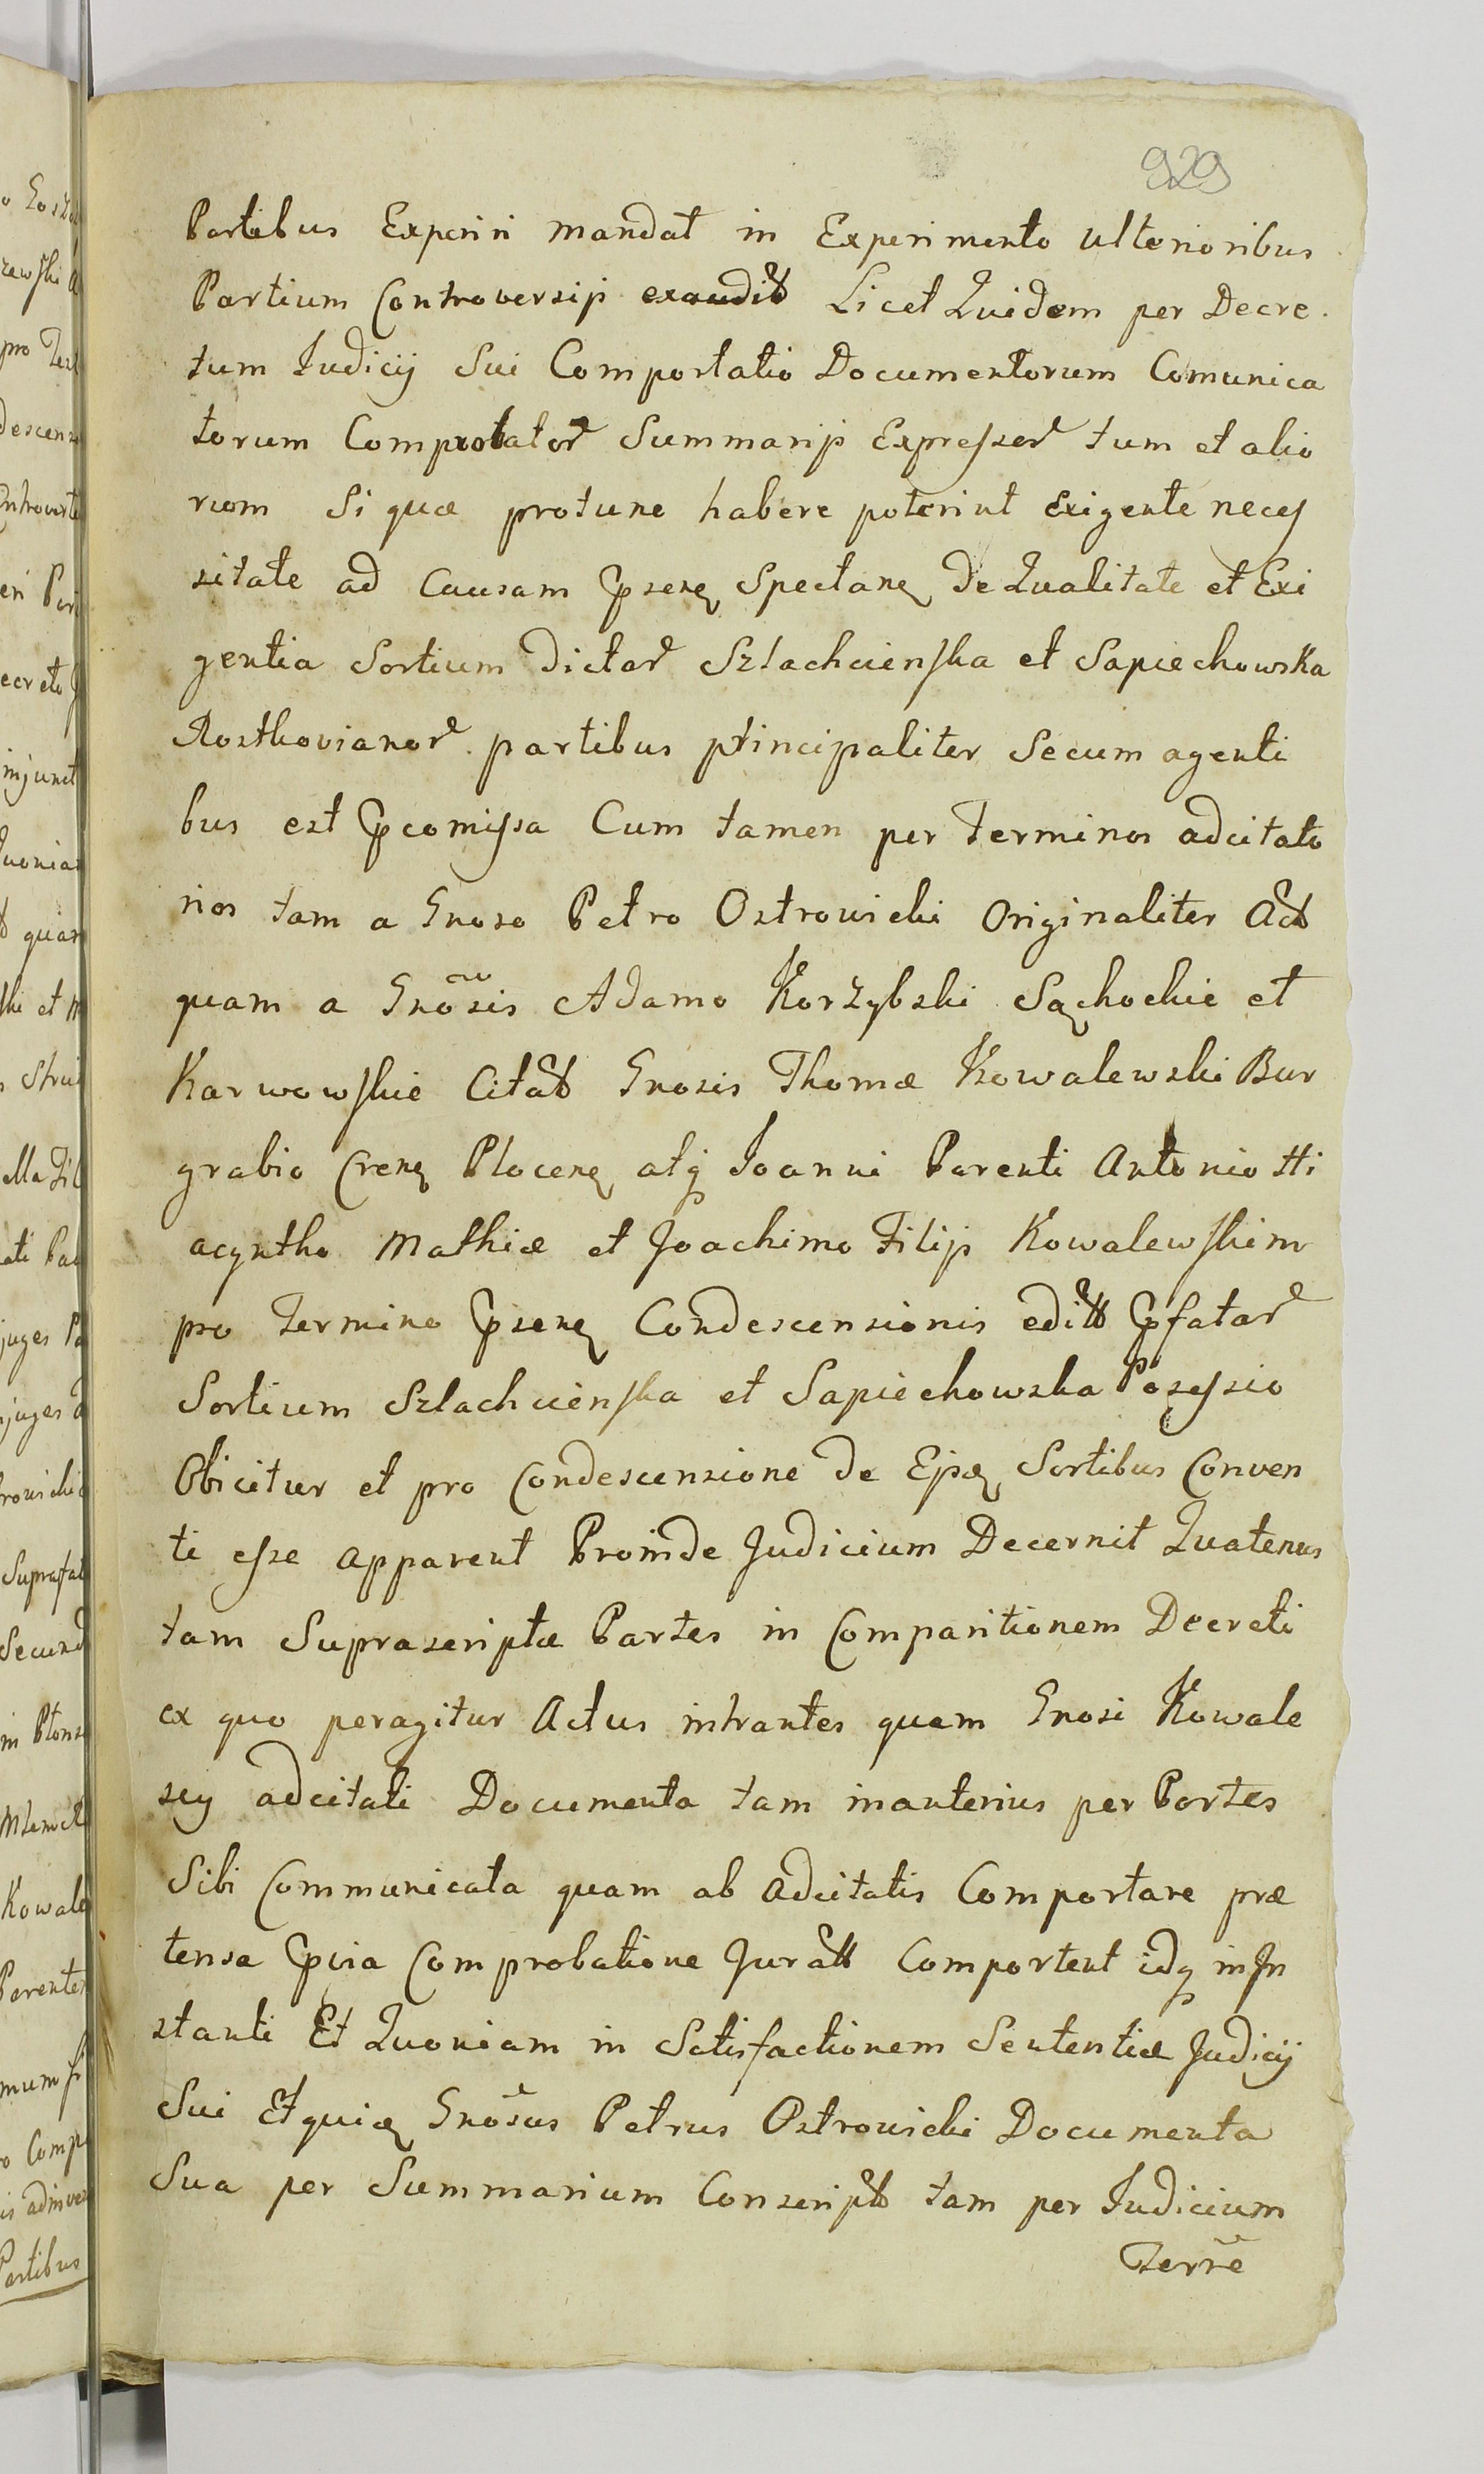 929
Partibus Experiri mandat in Experimento ulterioribus
Partium Controversijs exaudit Licet Quidem per Decre
tum Judicij Sui Comportatio Documentorum Comunica
torum Comprobator Summarijs Expresser tum et alio
rum Si quæ protunc habere poterint Exigente neces
sitate ad Causam Psene Spectane de Qualitate et Exi
gentia Sortium dictar Szlachcienska et Sapiechowska
Rostkovianor partibus principaliter Secum agenti
bus est Pcomissa Cum tamen per Terminos adcitato
rios tam a Gnoso Petro Ostrowicki Originaliter Act
quam a Gnosis Adamo Korzybski Sąchockie et
Karwowskie Citat Gnosis Thomæ Kowalewski Bur
grabio Crene Plocene atq Joanni Parenti Antonio Hi
acyntho Mathiæ et Joachimo Filijs Kowalewskim
pro Termino Psene Condescensionis editt Pfatar
Sortium Szlachcienska et Sapiechowska Posessio
Obicitur et pro Condescensione de Ejsdę Sortibus Conven
ti esse apparent Proinde Judicium Decernit Quatenus
tam Suprascriptæ Partes in Comparitionem Decreti
ex quo peragitur Actus intrantes quam Gnosi Kowale
scy adcitati Documenta tam inanterius per Partes
Sibi Communicata quam ab Adcitatis Comportare præ
tensa Pvia Comprobatione Juratt Comportent idq in In
stanti Et Quoniam in Satisfactionem Sententiæ Judicij
Sui Et quia Gnosus Petrus Ostrowicki Documenta
Sua per Summarium Conscript tam per Judicium
Terre